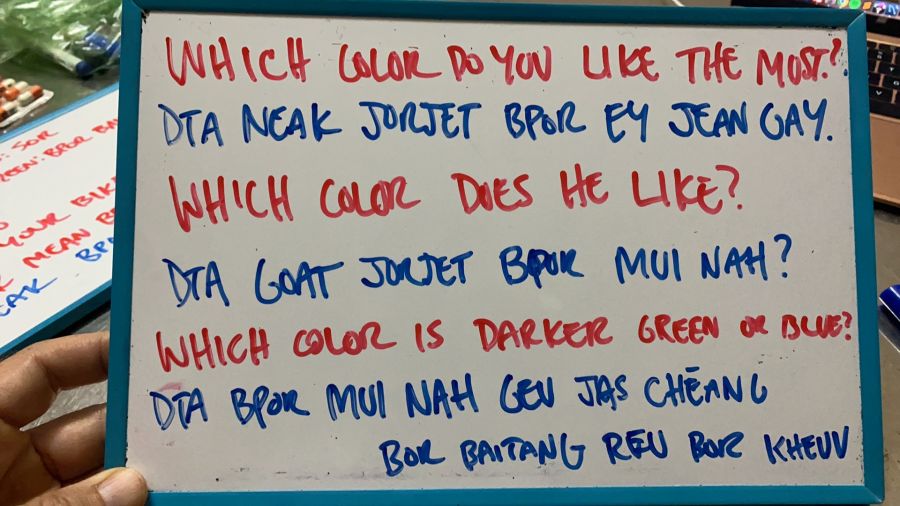 WHICH COLOR DO YOU LIKE THE MOST?
DTA NEAK JORJET BPOR EY JEAN GAY.
WHICH COLOR DOES HE LIKE?
DTA GOAT JORJET BPOR MUI NAH?
WHICH COLOR IS DARKER GREEN OR BLUE?
DTA BPOR MUI NAH GEU JAS CHĒANG
BOR BAITANG REU BOR KHEUV
SOR
BPOR BAI
YOUR BIK
MEAN B
EAK BPO